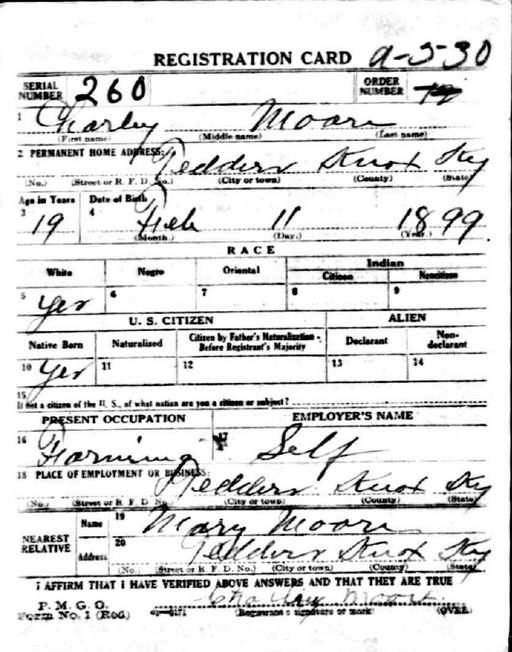 REGISTRATION CARD A-5-30
SERIAL NUMBER 260 ORDER NUMBER
1 Charley Moore
(First name) (Middle name) (Last name)
2 PERMANENT HOME ADDRESS: Tedders Knox Ky
(No.) (Street or R. F. D. No.) (City or town) (County) (State)
Age in Years Date of Birth
3 19 4 Feb 11 1899
(Month.) (Day.) (Year.)
RACE
White Negro Oriental Indian
Citizen Noncitizen
5 Yes 6 7 8 9
U. S. CITIZEN ALIEN
Native Born Naturalized Citizen by Father's Naturalization Before Registrant's Majority Declarant Non-declarant
10 Yes 11 12 13 14
15 If not a citizen of the U. S., of what nation are you a citizen or subject?
PRESENT OCCUPATION EMPLOYER'S NAME
16 Farming 17 Self
18 PLACE OF EMPLOYMENT OR BUSINESS: Tedders Knox Ky
(No.) (Street or R. F. D. No.) (City or town) (County) (State)
NEAREST RELATIVE Name 19 Mary Moore
Address 20 Tedders Knox Ky
(No.) (Street or R. F. D. No.) (City or town) (County) (State)
I AFFIRM THAT I HAVE VERIFIED ABOVE ANSWERS AND THAT THEY ARE TRUE
P. M. G. O.
Form No. 1 (Red) Charley Moore
(Registrant's signature or mark) (OVER)